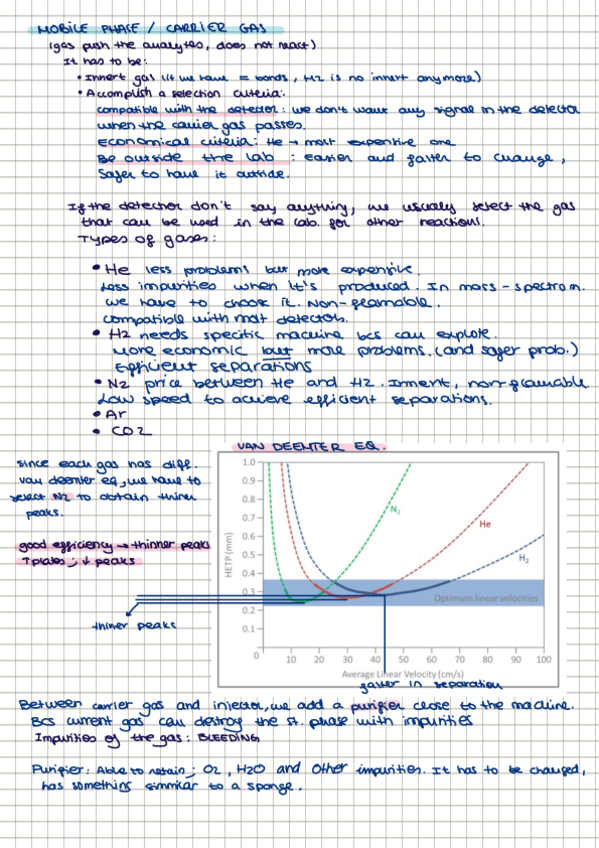 MOBILE PHASE / CARRIER GAS
(gas push the analytes, does not react)
It has to be:
• Innert gas (if we have = bonds, H2 is no innert anymore)
• Accomplish a selection criteria:
compatible with the detector: we don't want any signal in the detector
when the carrier gas passes.
Economical criteria: He → most expensive one
Be outside the lab : Easier and faster to change,
safer to have it outside.
If the detector don't say anything, we usually select the gas
that can be used in the lab. for other reactions.
Types of gases:
• He less problems but more expensive.
Less impurities when it's produced. In mass-spectrom.
we have to choose it. Non-flamable.
compatible with most detectors.
• H2 needs specific machine bcs can explote
More economic but more problems. (and safer prob.)
Efficient separations
• N2 price between He and H2. Innert, non-flamable
Low speed to achieve efficient separations.
• Ar
• CO2
VAN DEEMTER EQ.
since each gas has diff.
van deemter eq, we have to
select N2 to obtain thiner
peaks.
good efficiency → thinner peaks
↑plates; ↓ peaks
thiner peaks
HETP (mm)
1.0
0.9
0.8
0.7
0.6
0.5
0.4
0.3
0.2
0.1
0
N2
He
H2
Optimum linear velocities
10 20 30 40 50 60 70 80 90 100
Average Linear Velocity (cm/s)
faster in separation
Between carrier gas and injector, we add a purifier close to the machine.
Bcs current gas can destroy the st. phase with impurities
Impurities of the gas: BLEEDING
Purifier: Able to retain; O2, H2O and other impurities. It has to be changed,
has something simmilar to a sponge.